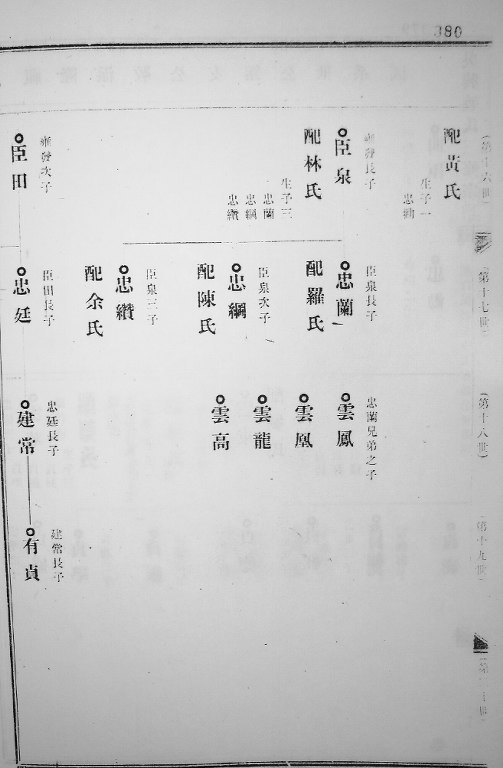 380
(第十六世)
配黃氏
生子一
忠勳
發長子
臣泉
配林氏
生子三
忠蘭
忠綱
忠纘
發次子
臣田
(第十七世)
臣泉長子
忠蘭
配羅氏
臣泉次子
忠綱
配陳氏
臣泉三子
忠纘
配余氏
臣田長子
忠廷
(第十八世)
忠蘭兄弟之子
雲鳳
雲凰
雲龍
雲高
忠廷長子
建常
(第十九世)
建常長子
有貞
(第二十世)